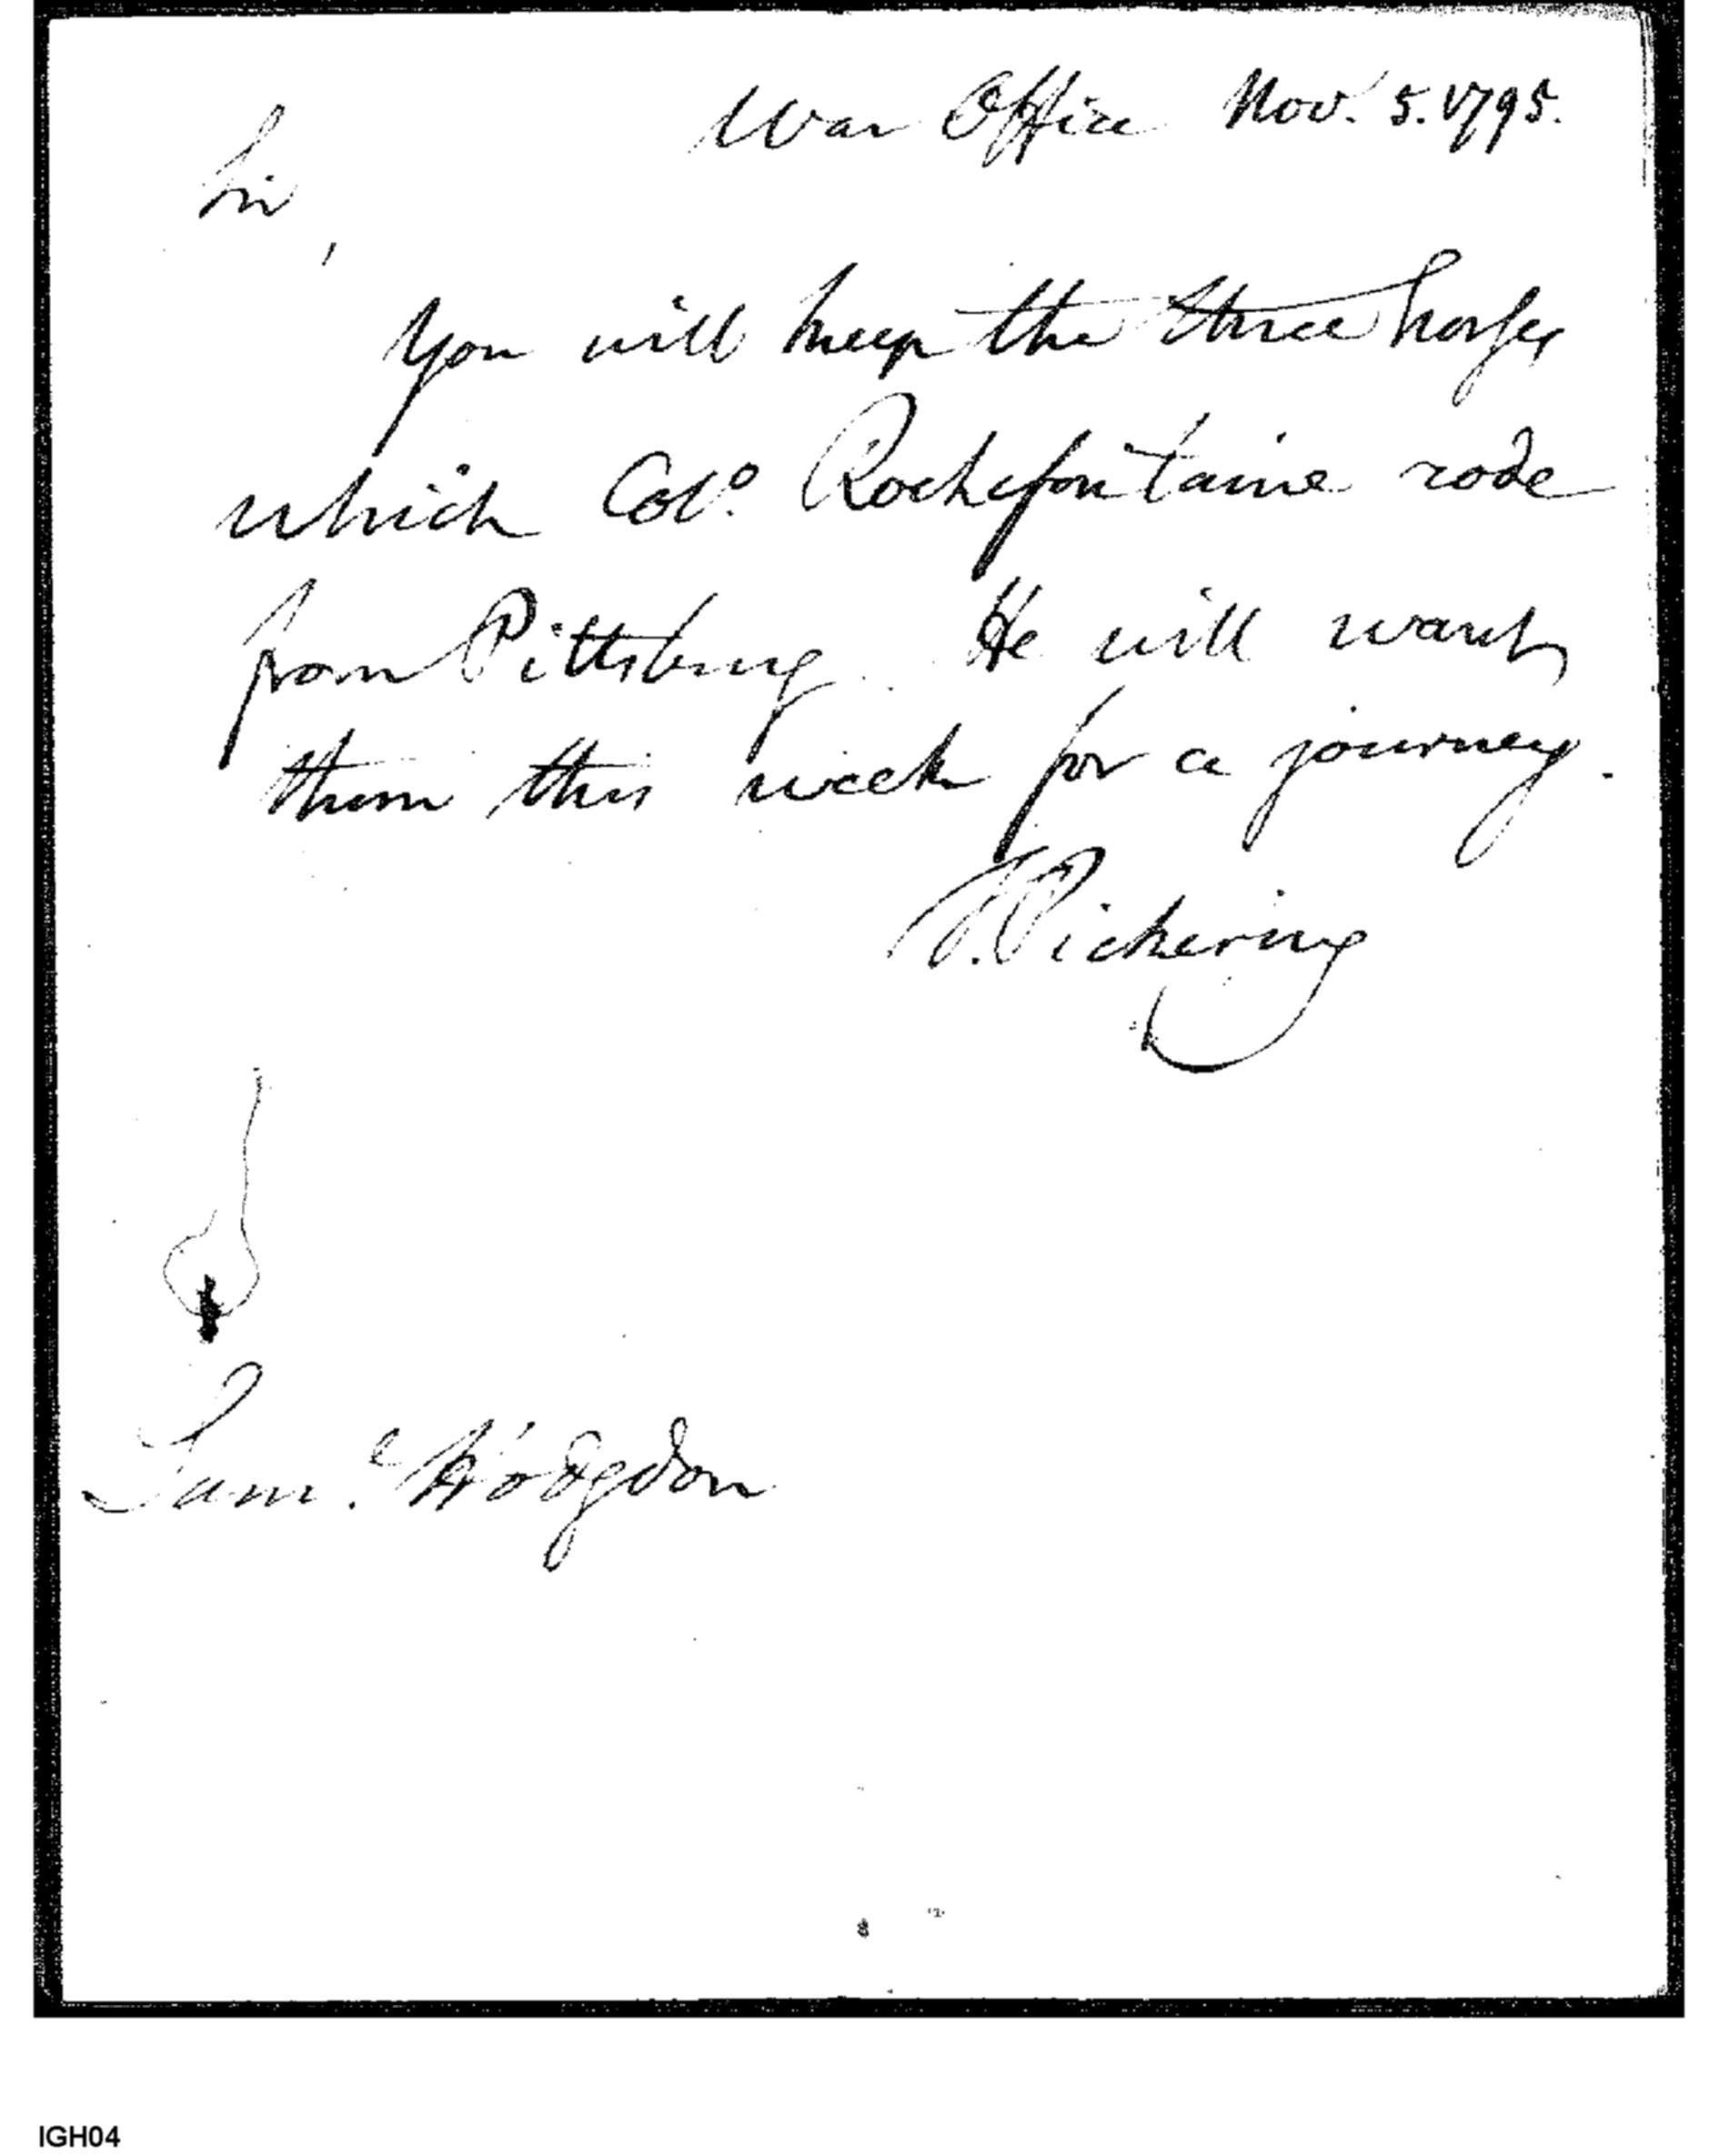 War Office Nov. 5. 1795.
Sir,
You will keep the three horses
which Colo. Rochefontaine rode
from Pittsburg. He will want
them this week for a journey.
T. Pickering
Saml. Hodgdon
8
IGH04